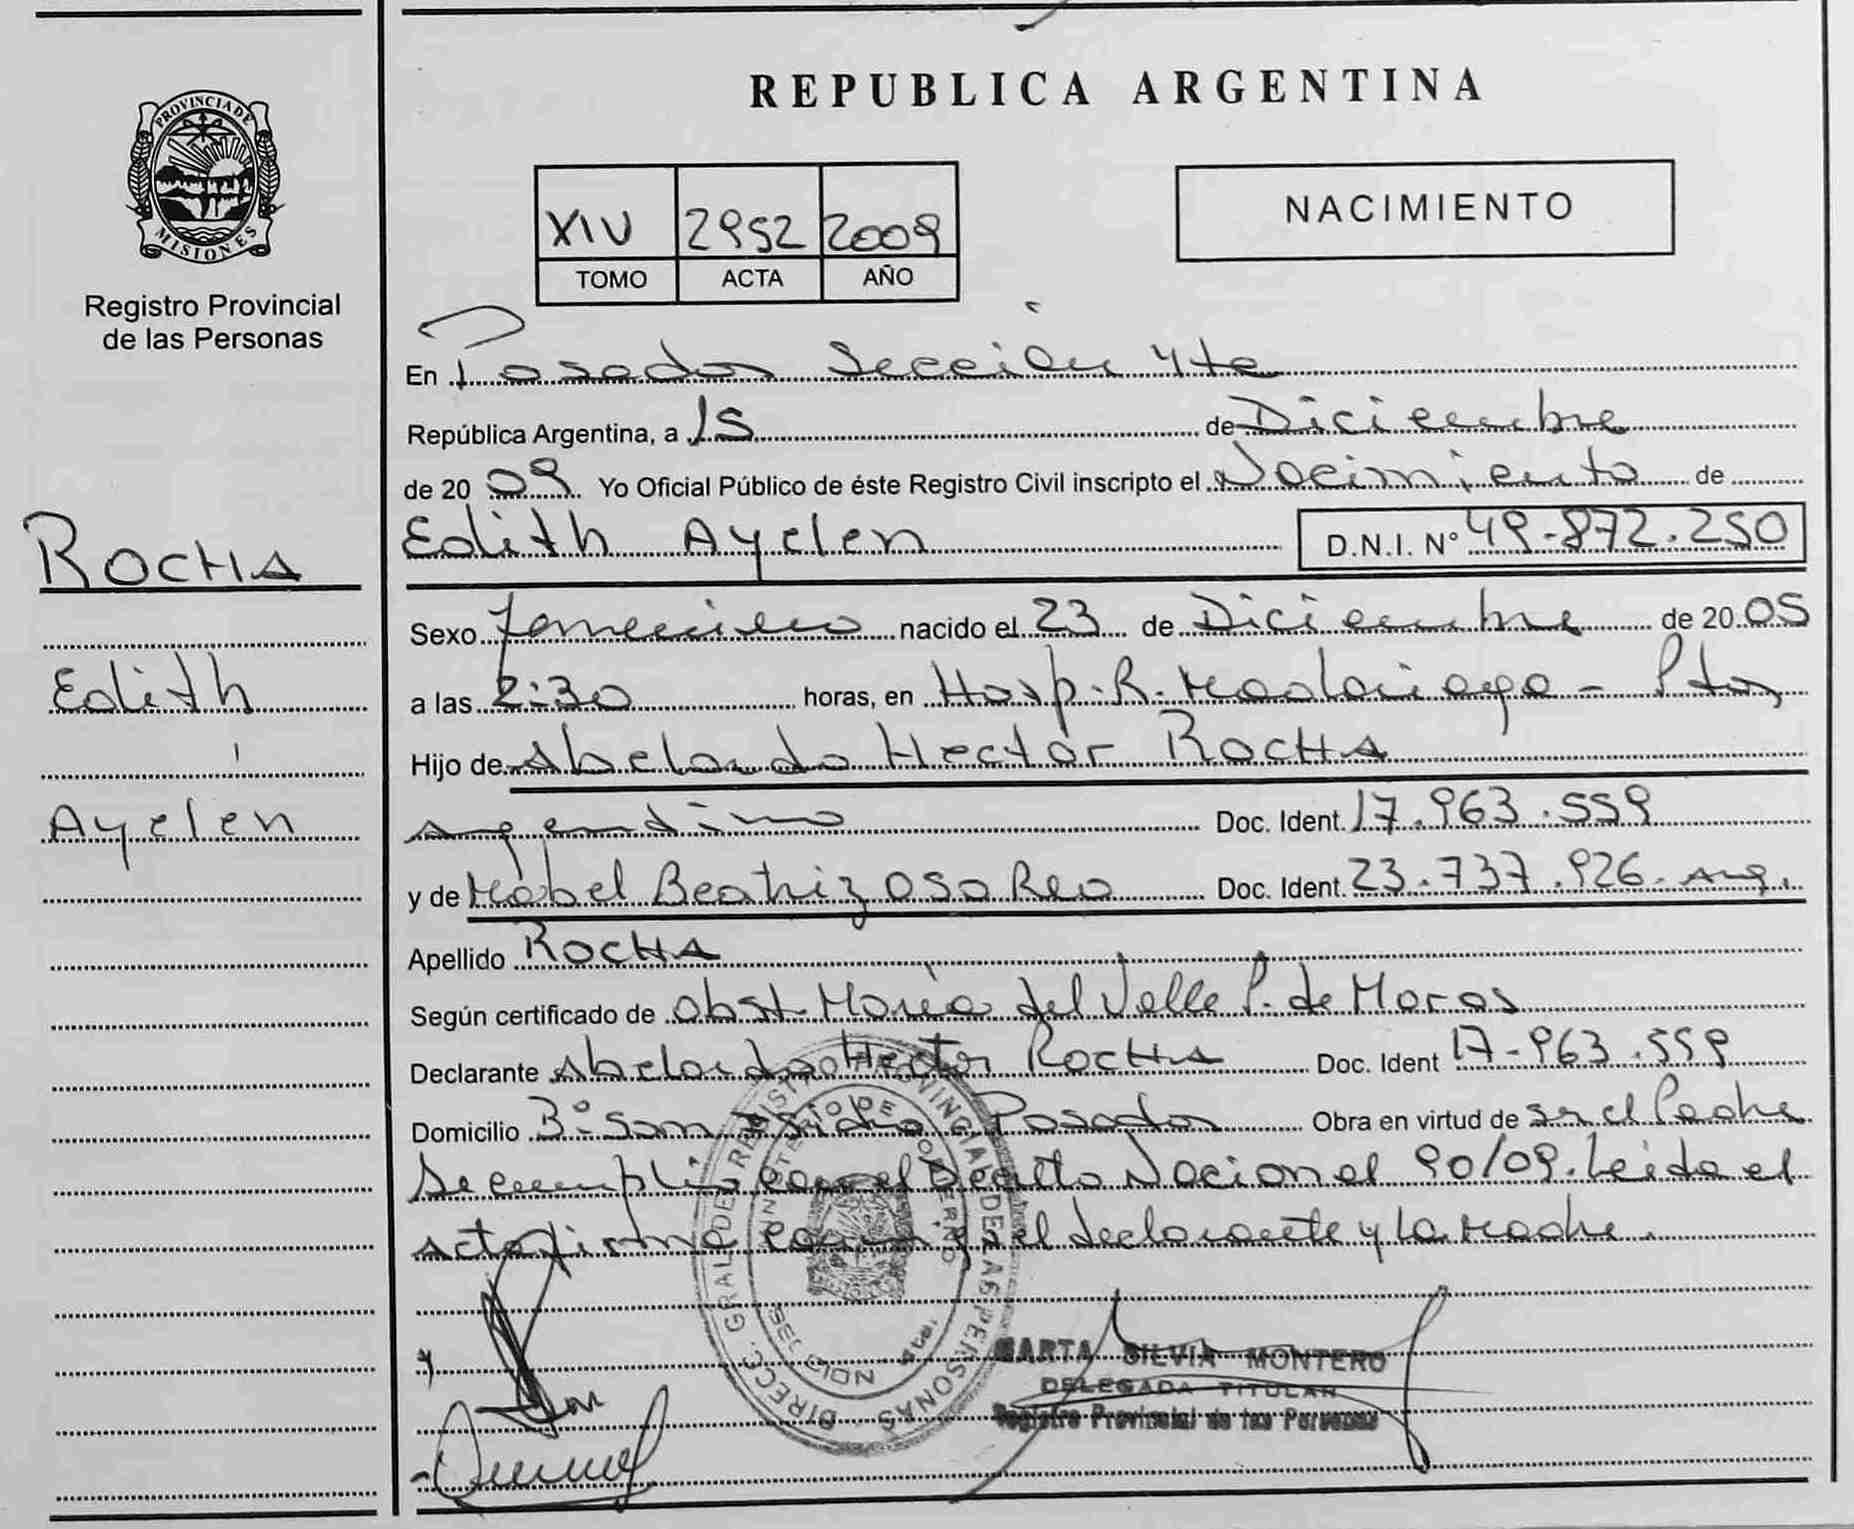 REPUBLICA ARGENTINA
PROVINCIA DE MISIONES
Registro Provincial
de las Personas
NACIMIENTO
XIV 2952 2009
TOMO ACTA AÑO
En Posadas Sección 4ta
República Argentina, a 15 de Diciembre
de 2009 Yo Oficial Público de éste Registro Civil inscripto el Nacimiento de
Edith Ayelen D.N.I. N° 49-872.250
ROCHA
Edith
Ayelen
Sexo Femenino nacido el 23 de Diciembre de 2005
a las 2:30 horas, en Hosp. R. Madariaga - Pdas
Hijo de Abelardo Hector ROCHA
argentino Doc. Ident. 17.963.559
y de Mabel Beatriz Doc. Ident. 23.737.926 - arg.
Apellido ROCHA
Según certificado de Obst. María del Valle P. de
Declarante Abelardo Hector ROCHA Doc. Ident 17-963.559
Domicilio B° San Isidro Posadas Obra en virtud de ser el Padre
Se cumplió con el Decreto Nacional 90/09. Leida el
acta firma el declarante y la Madre.
DIRECC. GRAL. DEL REGISTRO PROVINCIAL DE LAS PERSONAS
MINISTERIO DE GOBIERNO
MARTA SILVIA MONTERO
DELEGADA TITULAR
Registro Provincial de las Personas